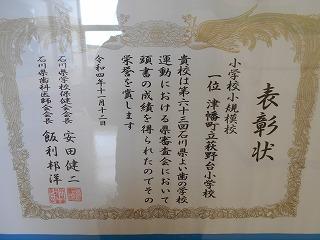 表彰状
小学校小規模校
一位 津幡町立萩野台小学校
貴校は第六十三回石川県よい歯の学校
運動における県審査会において
頭書の成績を得られたのでその
栄誉を賞します
令和四年十一月十二日
石川県学校保健会会長 安田健二
石川県歯科医師会会長 飯利邦洋